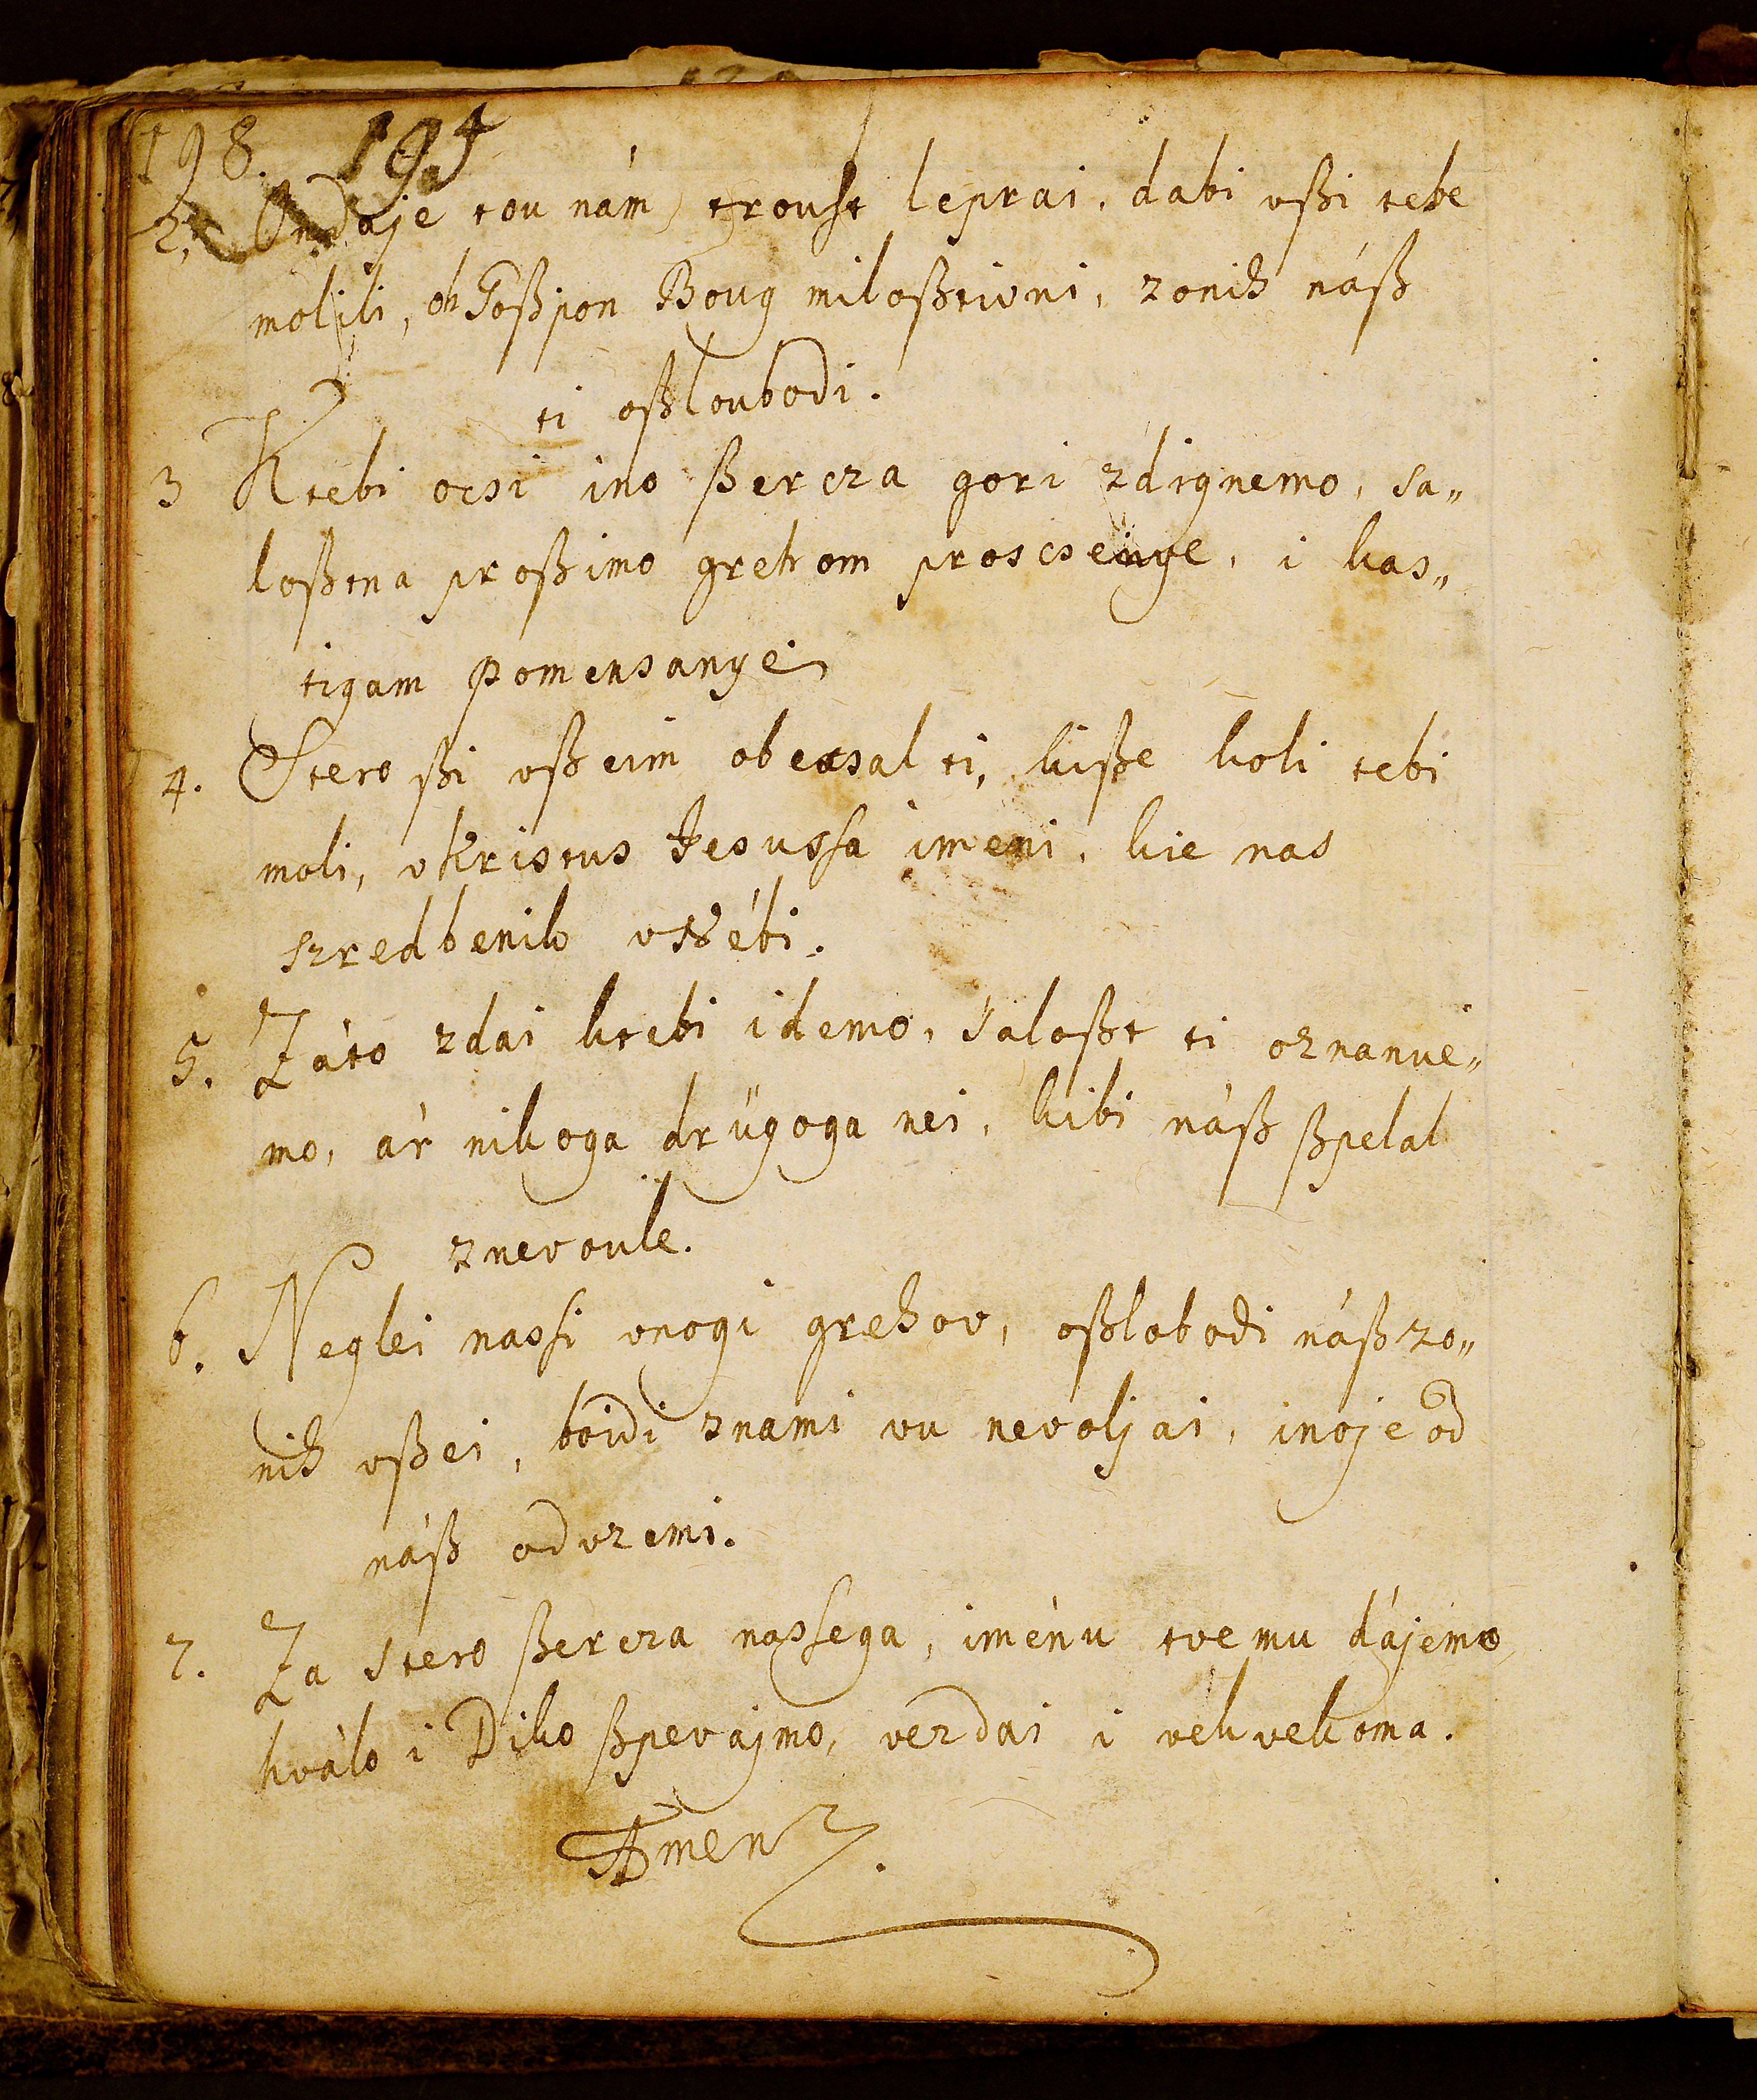 198. 195
2. Ondaje tou nám troust leprai, dabi vßi tebe
molili, oh Goßpon Boug miloßtivni, zonih náß
ti oßloubodi.
3 Ktebi ocsi ino ßercza gori zdignemo, sa„
loßtna proßimo grehom proscsenye, i kas„
tigam pomensanye
4. Stero ßi vßeim obecsal ti, kiße koli tebi
moli, vKristus Jesussa imeni, kie nas
szredbenik vtébi.
5. Záto zdai ktebi idemo, saloßt ti oznanue„
mo, ár nikoga drügoga nei, kibi náß ßpelal
znevoule.
6. Neglei nassi vnogi grehov, oßlobodi náß zo„
nih vßei, boidi znami vu nevoljai, inoje od
náß odvzemi.
7. Za stero ßercza nassega, iménu tvemu dájemo
hválo i Diko ßpevájmo, vezdai i vekvekoma.
Amen.